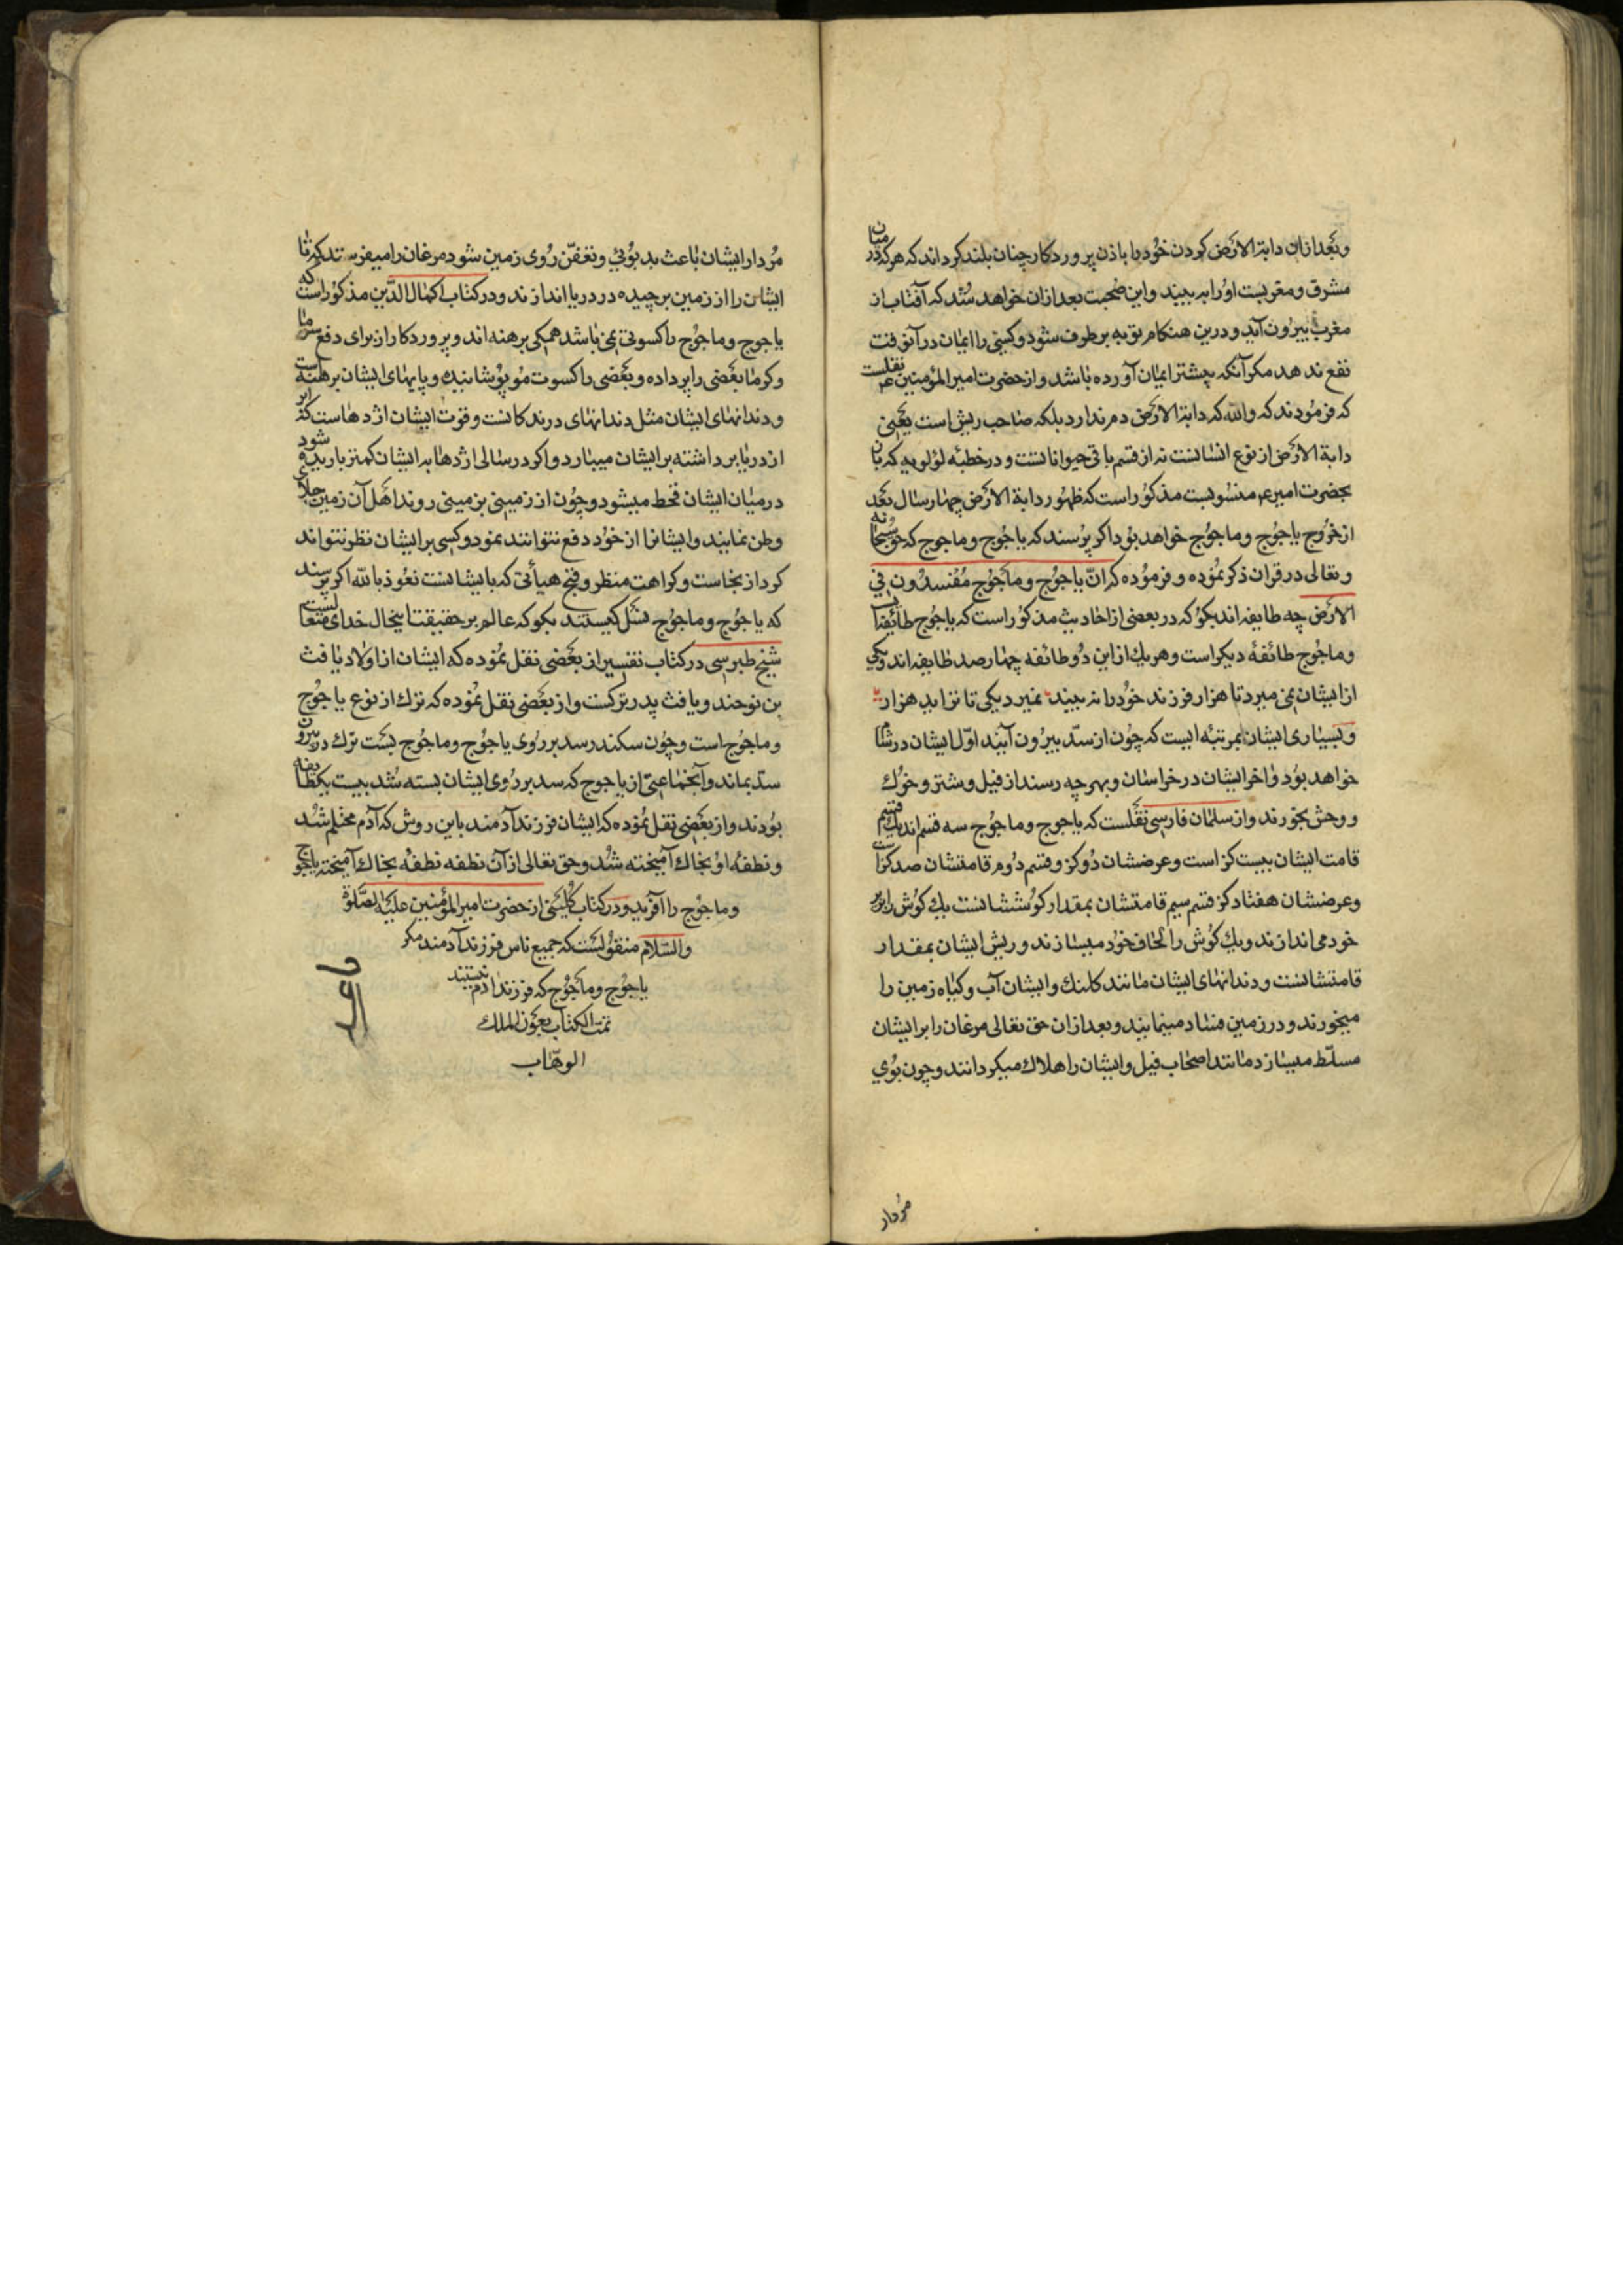 وبعد ازان دابة الارض کردن خود را باذن پروردکار چنان بلند کرداند که هرکه در میان
مشرق و مغربست او را به بیند و این صحبت بعد ازان خواهد شد که آفتاب از
مغرب بیرون آید و درین هنکام توبه بر طرف شود و کسی را ایمان در آنوقت
نفع ندهد مکر آنکه پیشتر ایمان آورده باشد و از حضرت امیر المؤمنین ع نقلست
که فرمودند که والله که دابة الارض دم ندارد بلکه صاحب ریش است یعنی
دابة الارض از نوع انسانست نه از قسم باقی حیوانانست و در خطبهٔ لؤلویه که بان
بحضرت امیر ع منسوبست مذکور است که ظهور دابة الارض چهار سال بعد
از خروج یاجوج و ماجوج خواهد بود اکر پرسند که یاجوج و ماجوج که حق سبحانه
و تعالی در قران ذکر نموده و فرموده که انّ یاجوج و ماجوج مفسدون فی
الارض چه طایفه اند بکو که در بعضی از احادیث مذکور است که یاجوج طائفه ایست
و ماجوج طائفهٔ دیکر است و هر یك ازین دو طائفه چهار صد طایفه اند و یکی
از ایشان نمی میرد تا هزار فرزند خود را نه بیند نمیرد یکی تا نزاید هزار
و بسیاری ایشان بمرتبه ایست که چون از سدّ بیرون آیند اوّل ایشان در شام
خواهد بود و اخر ایشان در خراسان و بهرچه رسند از فیل و شتر و خوك
و وحش بخورند و از سلمان فارسی نقلست که یاجوج و ماجوج سه قسم اند یك قسم
قامت ایشان بیست کز است و عرضشان دو کز و قسم دوم قامتشان صد کز است
و عرضشان هفتاد کز قسم سیم قامتشان بمقدار کوششانست یك کوش را زیر
خود می اندازند و یك کوش را لحاف خود میسازند و ریش ایشان بمقدار
قامتشانست و دندانهای ایشان مانند کلنك و ایشان آب و کیاه زمین را
میخورند و در زمین فساد مینمایند و بعد ازان حق تعالی مرغان را بر ایشان
مسلّط میسازد مانند اصحاب فیل و ایشان را هلاك میکردانند و چون بوی
مردار
مردار ایشان باعث بدبوئی و تعفّن روی زمین شود مرغان را میفرستد که تا
ایشان را از زمین برچیده در دریا اندازند و در کتاب اکمال الدّین مذکور است که
یاجوج و ماجوج را کسوتی نمی باشد همکی برهنه اند و پروردکار از برای دفع سرما
و کرما بعضی را پر داده و بعضی را کسوت مو پوشانیده و پایهای ایشان برهنه است
و دندانهای ایشان مثل دندانهای درندکانست و قوت ایشان اژدهاست که ابر
از دریا برداشته بر ایشان میبارد و اکر در سالی اژدها به ایشان کمتر باریده شود
در میان ایشان قحط میشود و چون از زمینی بزمینی روند اهل آن زمین جلای
وطن نمایند و ایشانرا از خود دفع نتوانند نمود و کسی بر ایشان نظر نتواند
کرد از نجاست و کراهت منظر و قبح هیأتی که با یشانست نعوذ بالله اکر پرسند
که یاجوج و ماجوج نسل کیستند بکو که عالم بر حقیقت اینحال خدای متعالست
شیخ طبرسی در کتاب تفسیر از بعضی نقل نموده که ایشان از اولاد یافث
بن نوحند و یافث پدر ترکست و از بعضی نقل نموده که ترك از نوع یاجوج
و ماجوج است و چون سکندر سد بر روی یاجوج و ماجوج بست ترك در بیرون
سدّ بماند و آنجماعتی از یاجوج که سد بر روی ایشان بسته شد بیست یکطایفه
بودند و از بعضی نقل نموده که ایشان فرزند آدمند باین روش که آدم محتلم شد
و نطفهٔ او بخاك آمیخته شد و حق تعالی از آن نطفه نطفه بخاك آمیخته یاجوج
و ماجوج را آفرید و در کتاب کلینی از حضرت امیر المؤمنین علیه الصّلوة
والسّلام منقولست که جمیع ناس فرزند آدمند مکر
یاجوج و ماجوج که فرزند آدم نیستند
تمت الکتاب بعون الملك
الوهّاب